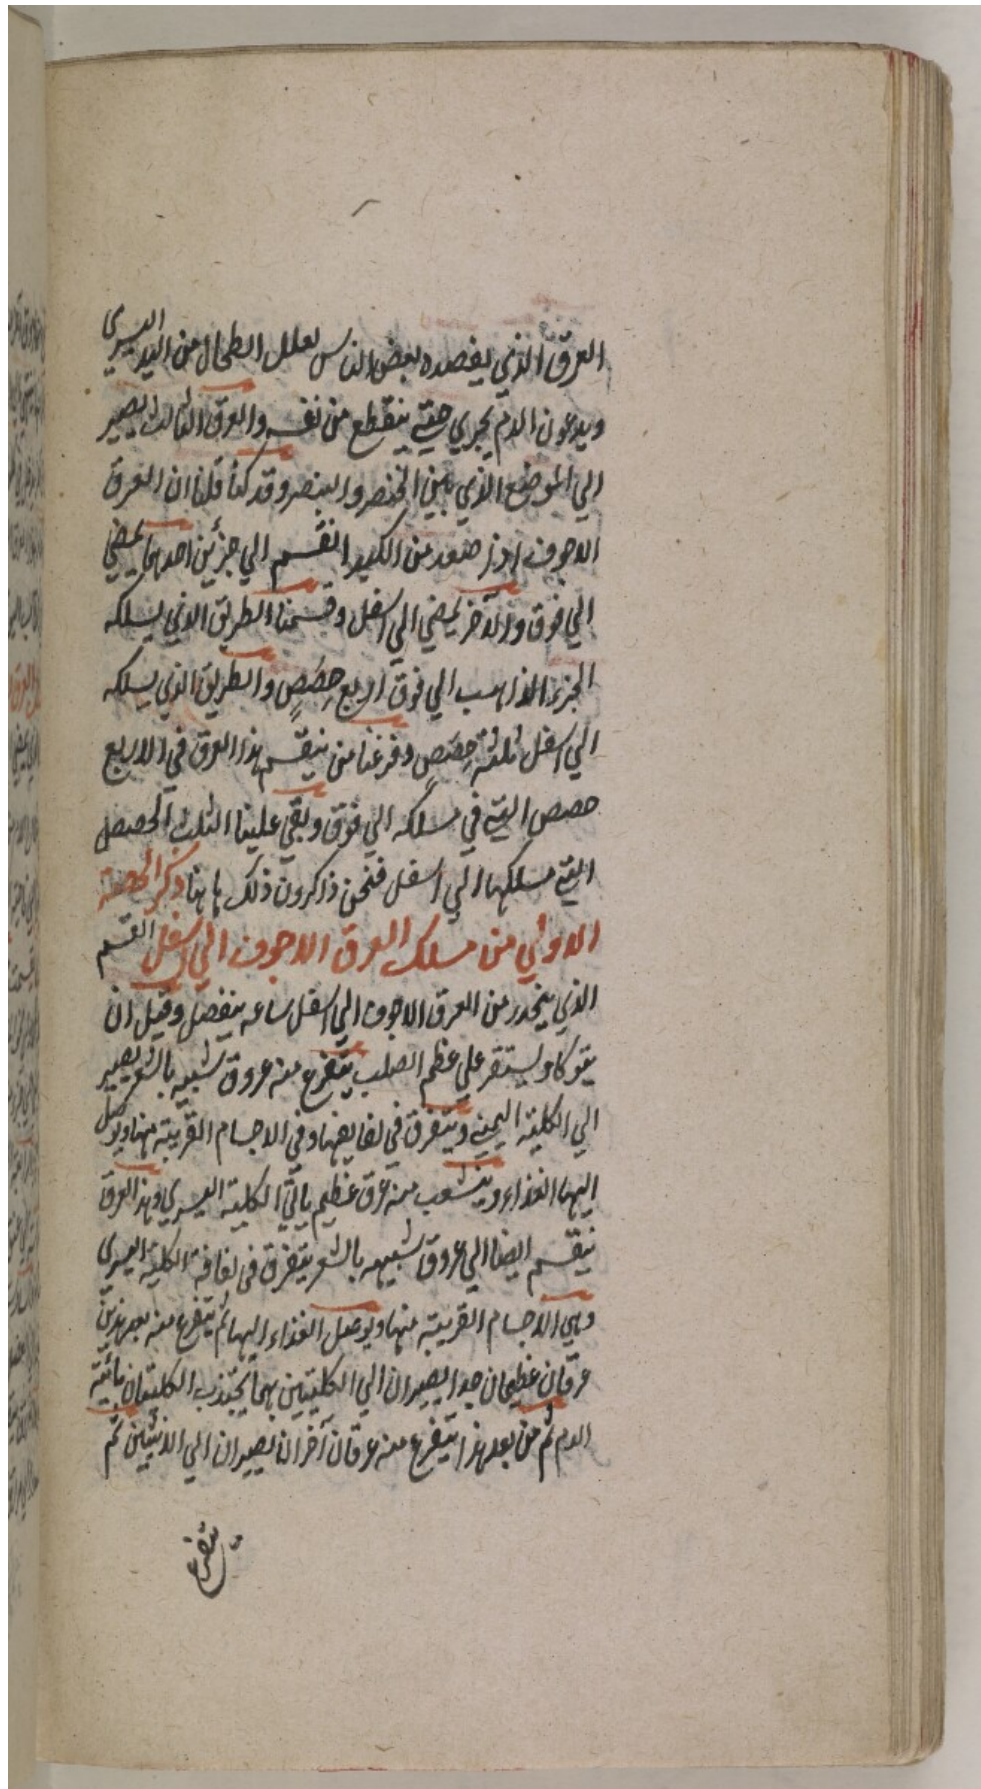 العرق الذي يفصده بعض الناس لعلل الطحال من اليد اليسري
ويدعون الدم يجري حتي ينقطع من نفسه والعرق الثالث يصير
الي الموضع الذي بين الخنصر والبنصر وقد كنا قلنا ان العرق
الاجوف اذا صعد من الكبد انقسم الي جزئين احدهما يمضي
الي فوق والآخر يمضي الي اسفل وقسمنا الطريق الذي يسلكه
الجزء الذاهب الي فوق اربع حِصَصٍ والطريق الذي يسلكه
الي اسفل ثلثة حِصَصٍ وفرغنا من ينقسم هذا العرق في الاربع
حصص التي في مسلكه الي فوق وبقي علينا الثلث الحصص
التي مسلكها الي اسفل فنحن ذاكرون ذلك هاهنا ذكر الحصة
الاولي من مسلك العرق الاجوف الي اسفل القسم
الذي ينحدر من العرق الاجوف الي اسفل ساعه ينفصل وقبل ان
يتوكا ويستقر علي عظم الصلب يتفرع منه عروق شبيه بالشعر يصير
الي الكلية اليمني ويتفرق في لفايفها وفي الاجسام القريبة منها ويوصل
اليها الغذاء وينشعب منه عرق عظيم ياتي الكلية اليسري وهذا العرق
ينقسم ايضا الي عروق شبيهه بالشعر يتفرق في لفافة الكلية اليسري
وفي الاجسام القريبة منها ويوصل الغذاء اليها ثم يتفرع منه بعد هذين
عرقان عظيمان جدا يصيران الي الكليتين بهما يجتذب الكليتان مائية
الدم ثم من بعد هذا يتفرع منه عرقان آخران يصيران الي الانثيين ثم
يتفرع